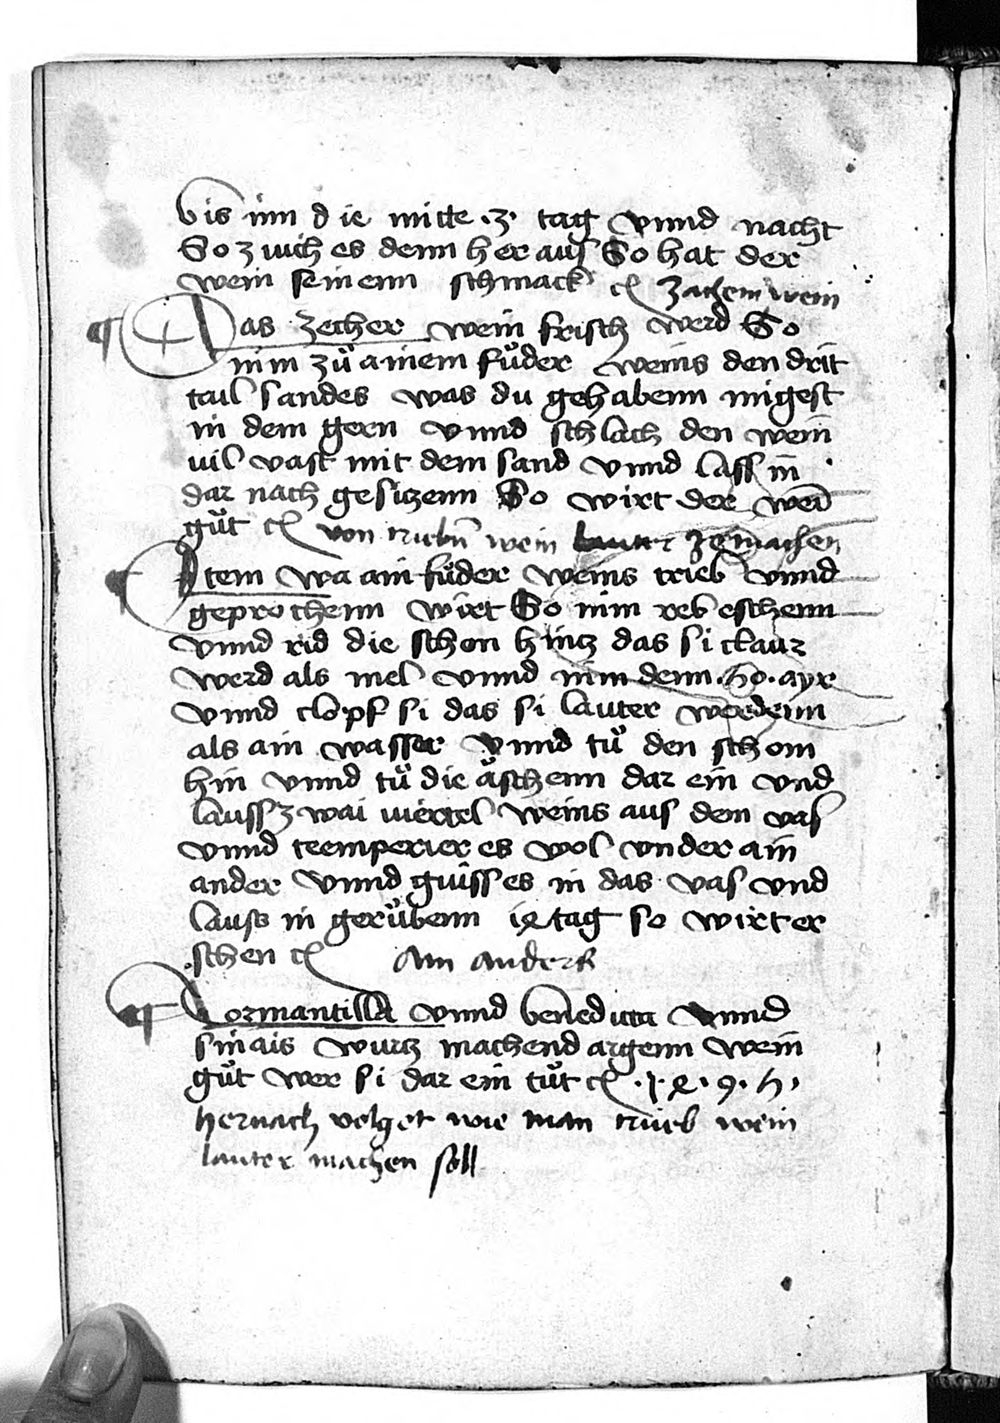 bis inn die mitte .3. tag vnnd nacht
So zuich es denn her aus So hat der
wein seinenn schmack Zachem wein
Das zecher wein frisch werd So
nim zuͦ ainem fuͦder weins den drit
tail sandes was du gehabenn migest
in dem gern vnnd schlach den wein
uil vast mit dem sand vnnd lass in
dar nach gesitzenn So wirt der wein̄
guͦt von truebn̄ wein lauter ze machen
Item wa ain fuͦder weins trieb vnnd
geprochenn wirt So nim reb eschenn
vnnd rid die schon hintz das si claur
werd als mel vnnd nim denn .50. ayr
vnnd clopf si das si lauter werdenn
als ain wasser vnnd tuͦ den schom
hin vnnd tuͦ die äschenn dar ein vnd
lauss zwai uiertel weins aus dem vas
vnnd teemperier es wol vnder ain
ander vnnd guiss es in das vas vnd
lauss in geruͤbenn 14 tag so wirt er
schen Am anders
Tormantilla vnnd benedicta vnnd
sinais wurtz machend argenn wein
guͦt wer si dar ein tuͦt .1.4.9.5.
hernach volget wie man trueb wein
lauter machen soll